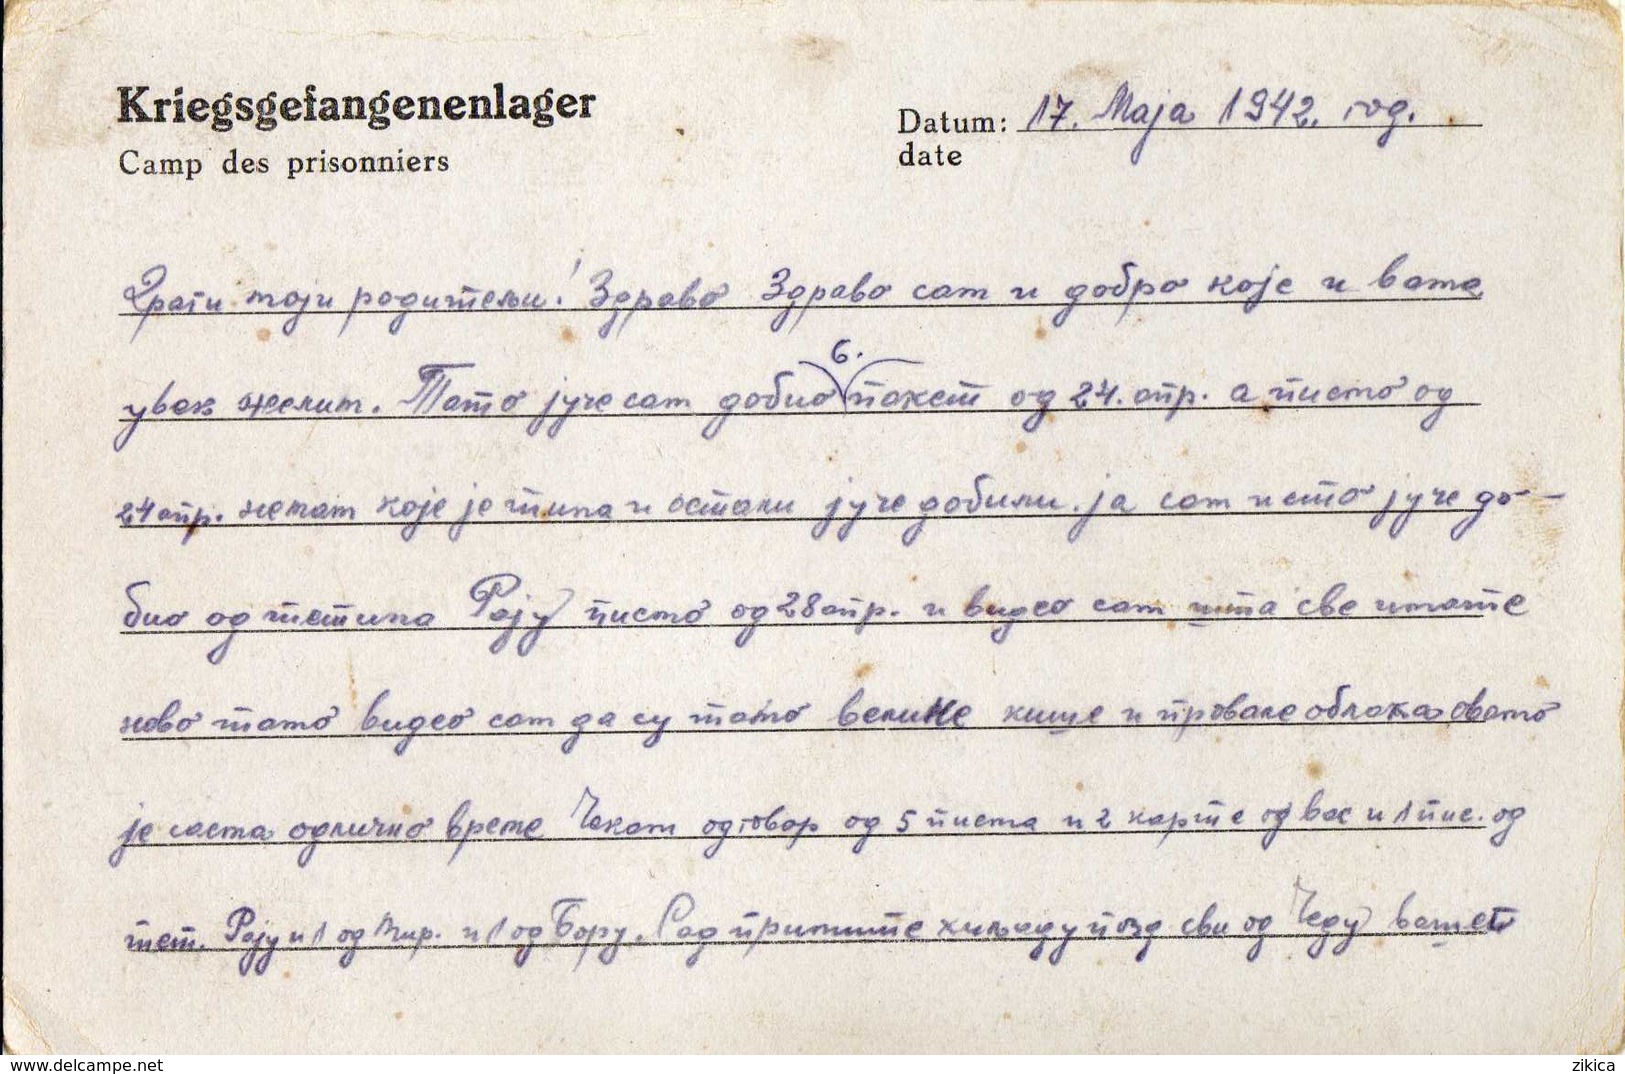 Kriegsgefangenenlager
Camp des prisonniers
Datum: 17. Маја 1942. год.
date
Драги моји родитељи! Здраво Здраво сам и добро које и вама
увек желим. Тамо јуче сам добио 6. пакет од 24. апр. а писмо од
24 апр. немам које је и остали јуче добили. ја сам исто јуче до-
био од тетина Рају писмо од 28 апр. и видео сам шта све имате
ново тамо видео сам да су тамо велике кише и провале облака овамо
је сасма одлично време Чекам одговор од 5 писма и 2 карте од вас и 1 пис. од
тет. Рају и 1 од Мир. и 1 од Бору. Сад примите хиљаду позд сви од Чеду вашег
zikica